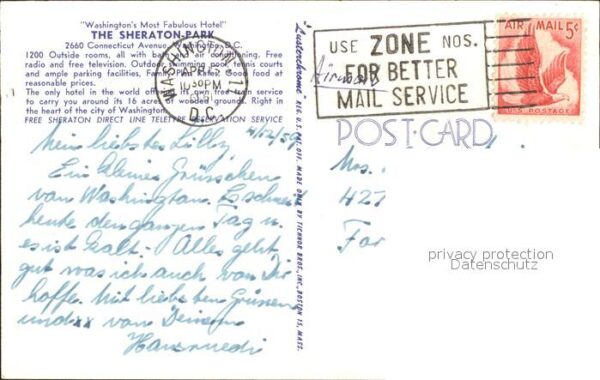 "Washington's Most Fabulous Hotel"
THE SHERATON-PARK
2660 Connecticut Avenue, Washington, D.C.
1200 Outside rooms, all with bath and air conditioning. Free
radio and free television. Outdoor swimming pool, tennis courts
and ample parking facilities, Family Plan rates. Good food at
reasonable prices.
The only hotel in the world offering its own free train service
to carry you around its 16 acres of wooded grounds. Right in
the heart of the city of Washington.
FREE SHERATON DIRECT LINE TELETYPE RESERVATION SERVICE
WASHINGTON
APR 12
10 30 PM
D.C.
4/12/59
Mein liebstes Lilly,
Ein kleines Grüsschen
von Washington. Es schneit
heute den ganzen Tag u.
es ist kalt. Alles geht
gut was ich auch von Dir
hoffe. Mit liebsten Grüssen
und xx von Deinem
Hansruedi
"Lusterchrome" REG. U.S. PAT. OFF. MADE ONLY BY TICHNOR BROS., INC., BOSTON 15, MASS.
USE ZONE NOS.
FOR BETTER
MAIL SERVICE
Airmail
AIR MAIL 5¢
U.S. POSTAGE
POST CARD
Mrs.
427
For
privacy protection
Datenschutz